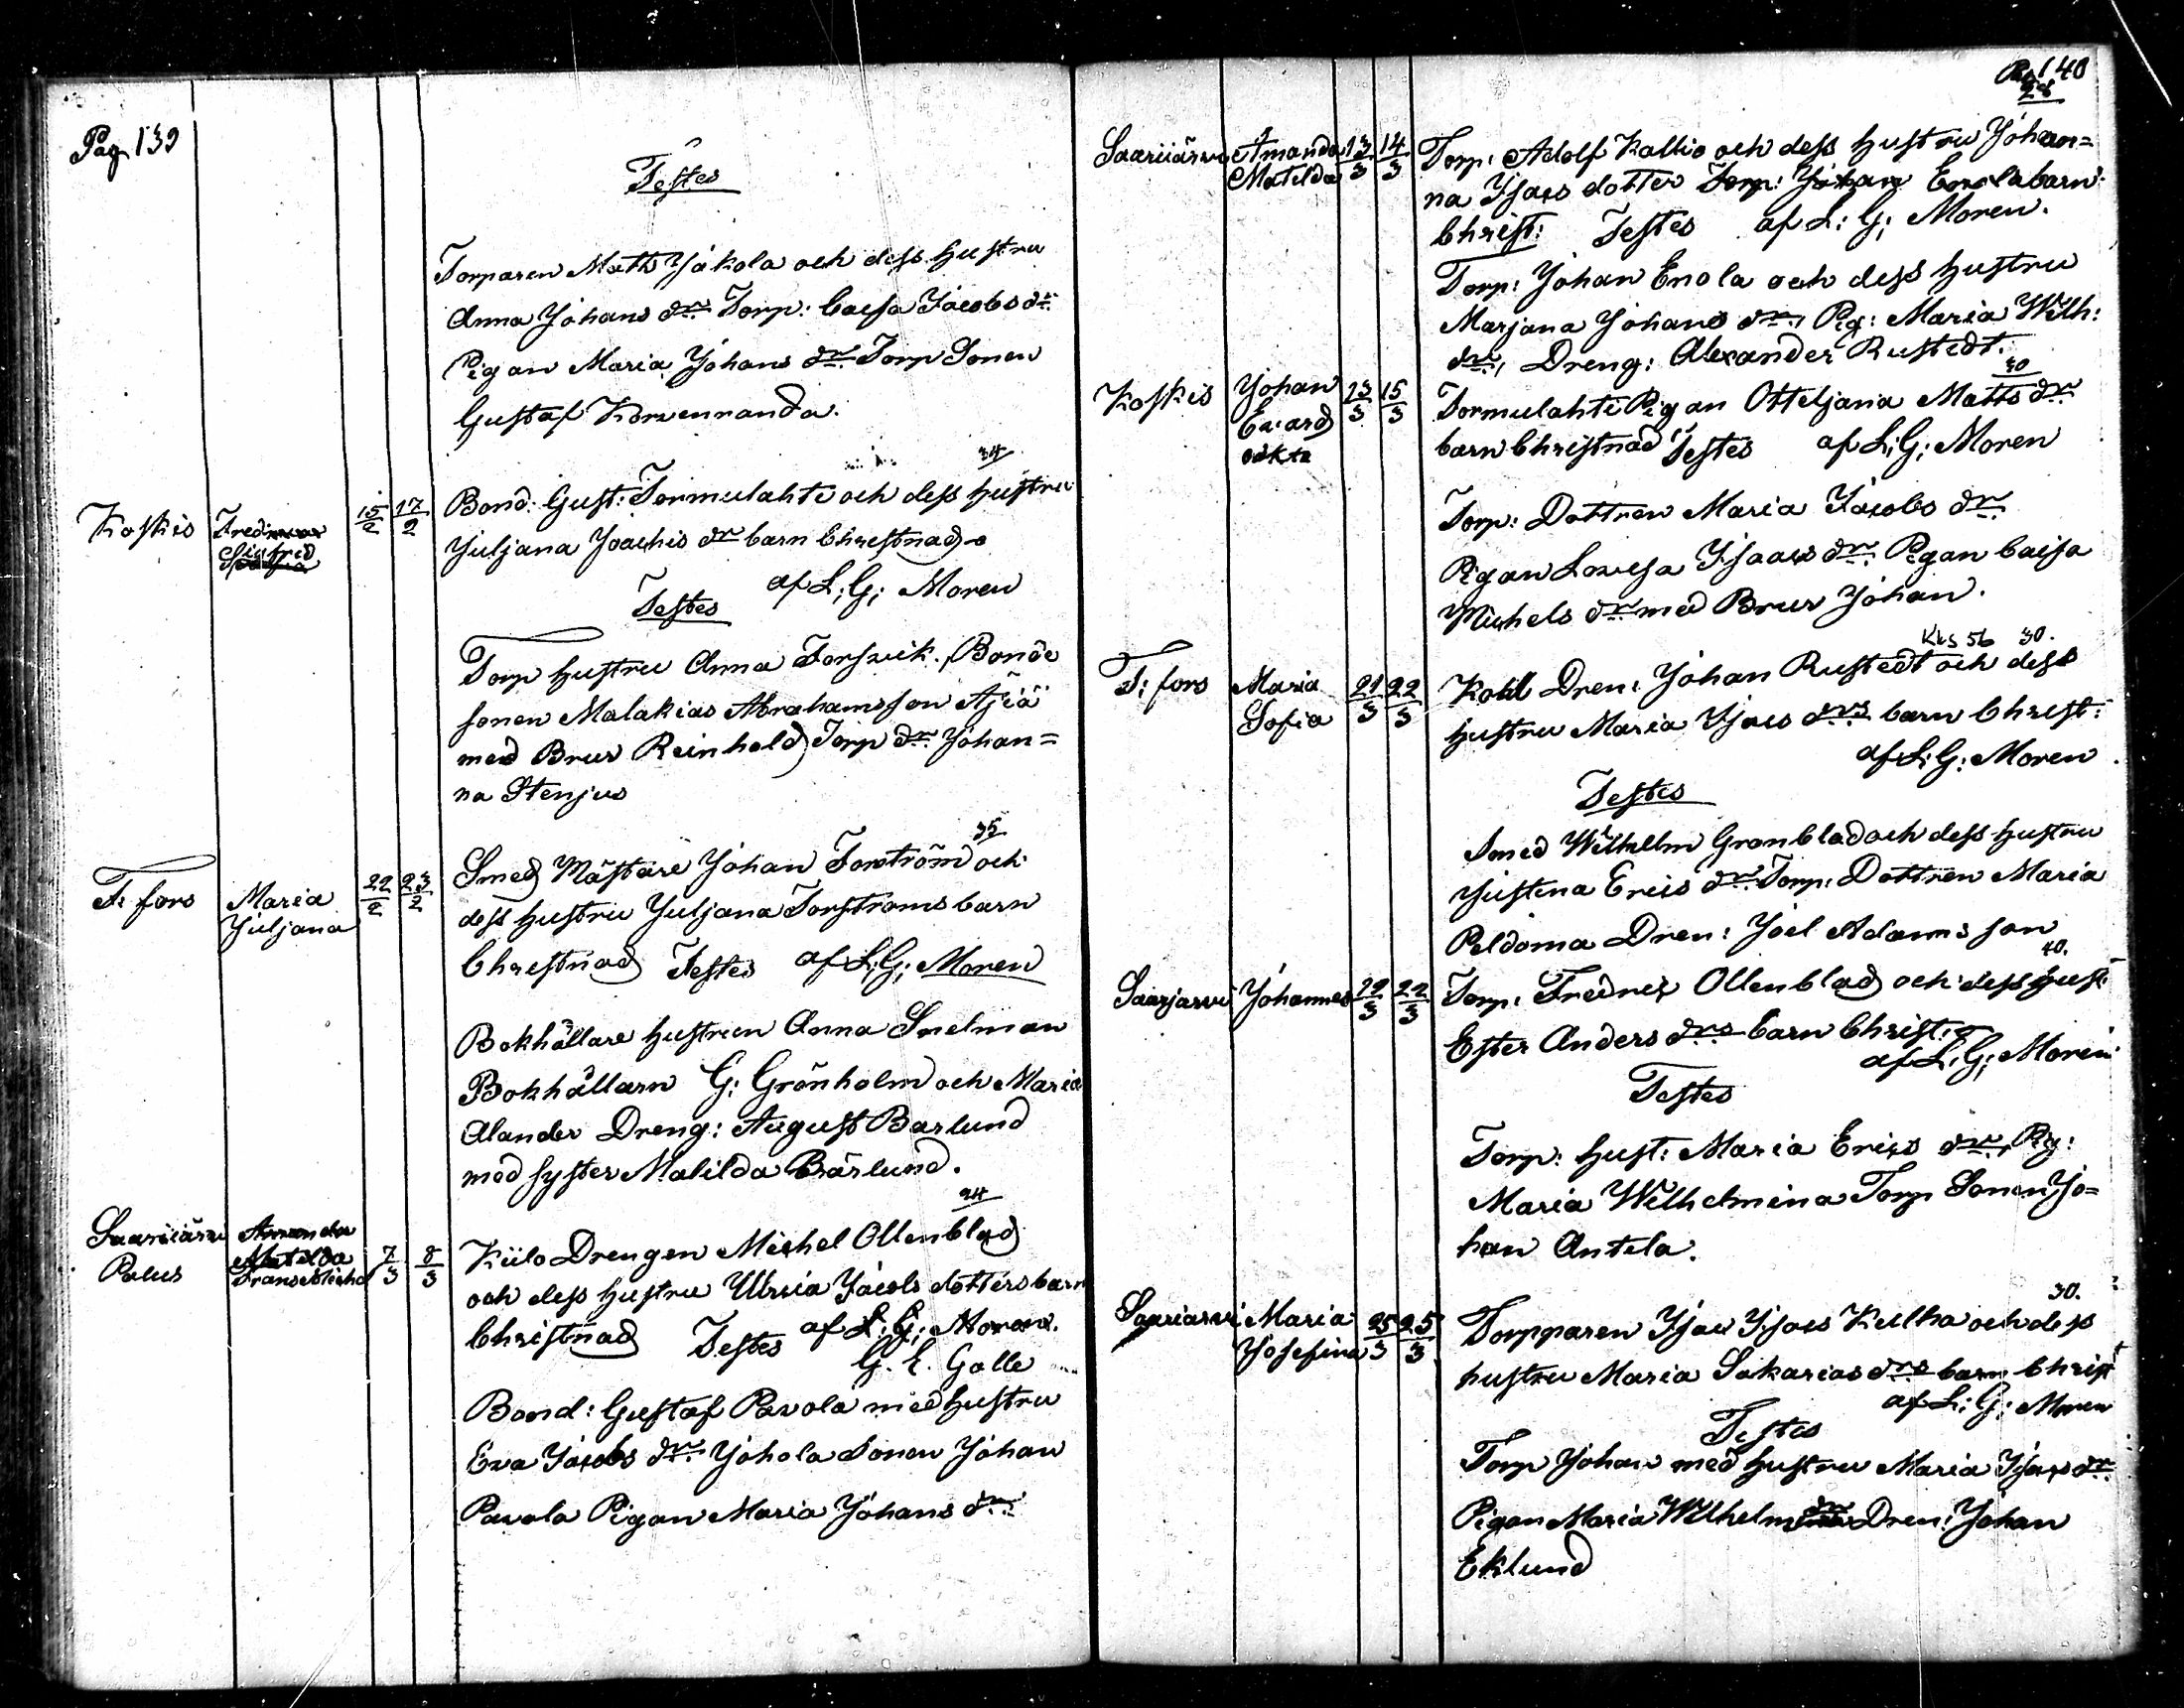 Pag 139
Testes
Torparen Matts Jakola och dess hustru
Anna Johans dr. Torp: Caesa Jacobs dr.
Pigan Maria Johans dr. Torp Sonen
Gustaf Korvenranda.
34
Koskis Fredrica 15/2 17/2 Bond: Gust: Tormulahti och dess hustru
Sigfrid Juljana Joachis dr barn Christnad
af L: G: Moren
Testes
Torp hustru Anna Forsvik, Bonde
sonen Malakias Abrahamsson Äjiä
med Brur Reinhold, Torp dr Johan=
na Stenjus
35
T: fors Maria 22/2 23/2 Smed Mästare Johan Forström och
Juljana dess hustru Juljana Forstroms barn
Christnad Testes af L: G: Moren
Bokhållare hustrun Anna Snelman
Bokhållarn G: Grönholm och Maria
Alander Dreng: August Barlund
med syster Matilda Bärlund.
24
Saariiärvi Amanda Matilda
Palus Frans Michel 7/3 8/3 Kiilo Drengen Michel Ollenblad
och dess hustru Ulrica Jacobs dotters barn
Christnad Testes af L: G: Moren.
G. E. Galle
Bond: Gustaf Pavola med hustru
Eva Jacobs dr. Johola Sonen Johan
Pavola Pigan Maria Johans dr.
Pag 140
28
Saariiärvi Amanda 13/3 14/3 Torp: Adolf Kallio och dess hustru Johan=
Matilda na Isacs dotter Torp: Johan Enola barn
Christ: Testes af L: G: Moren.
Torp: Johan Enola och dess hustru
Marjana Johans dr., Pig: Maria Wilh:
dr., Dreng: Alexander Rustedt.
30
Koskis Johan 13/3 15/3 Tormulahti Pigan Otteljana Matts dr
Evard barn Christnad Testes af L: G: Moren
oäkta
Torp: Dottren Maria Jacobs dr
Pigan Lovisa Isaacs dr. Pigan Caisa
Michels dr. med Brur Johan.
Kks 56 30.
T: fors Maria 21/3 22/3 Kohl Dren: Johan Rustedt och dess
Sofia hustru Maria Isacs drs barn Christ:
af L: G: Moren
Testes
Smed Wilhelm Granblad och dess hustru
Justina Erics dr. Torp: Dottren Maria
Peldoma Dren: Joel Adams son
40.
Saarjarvi Johannes 22/3 22/3 Torp: Fredric Ollenblad och dess hust:
Ester Anders drs barn Christ:
af L: G: Moren
Testes
Torp: hust: Maria Erics dr., Pig:
Maria Wilhelmina Torp Sonen Jo=
han Antela.
30.
Saariarvi Maria 25/3 25/3 Torpparen Isac Isacs Kulha och dess
Josefina hustru Maria Sakarias drs barn Christ
af L: G: Moren
Testes
Torp Johan med hustru Maria Isacs dr.
Pigan Maria Wilhelms dr Dren: Johan
Eklund